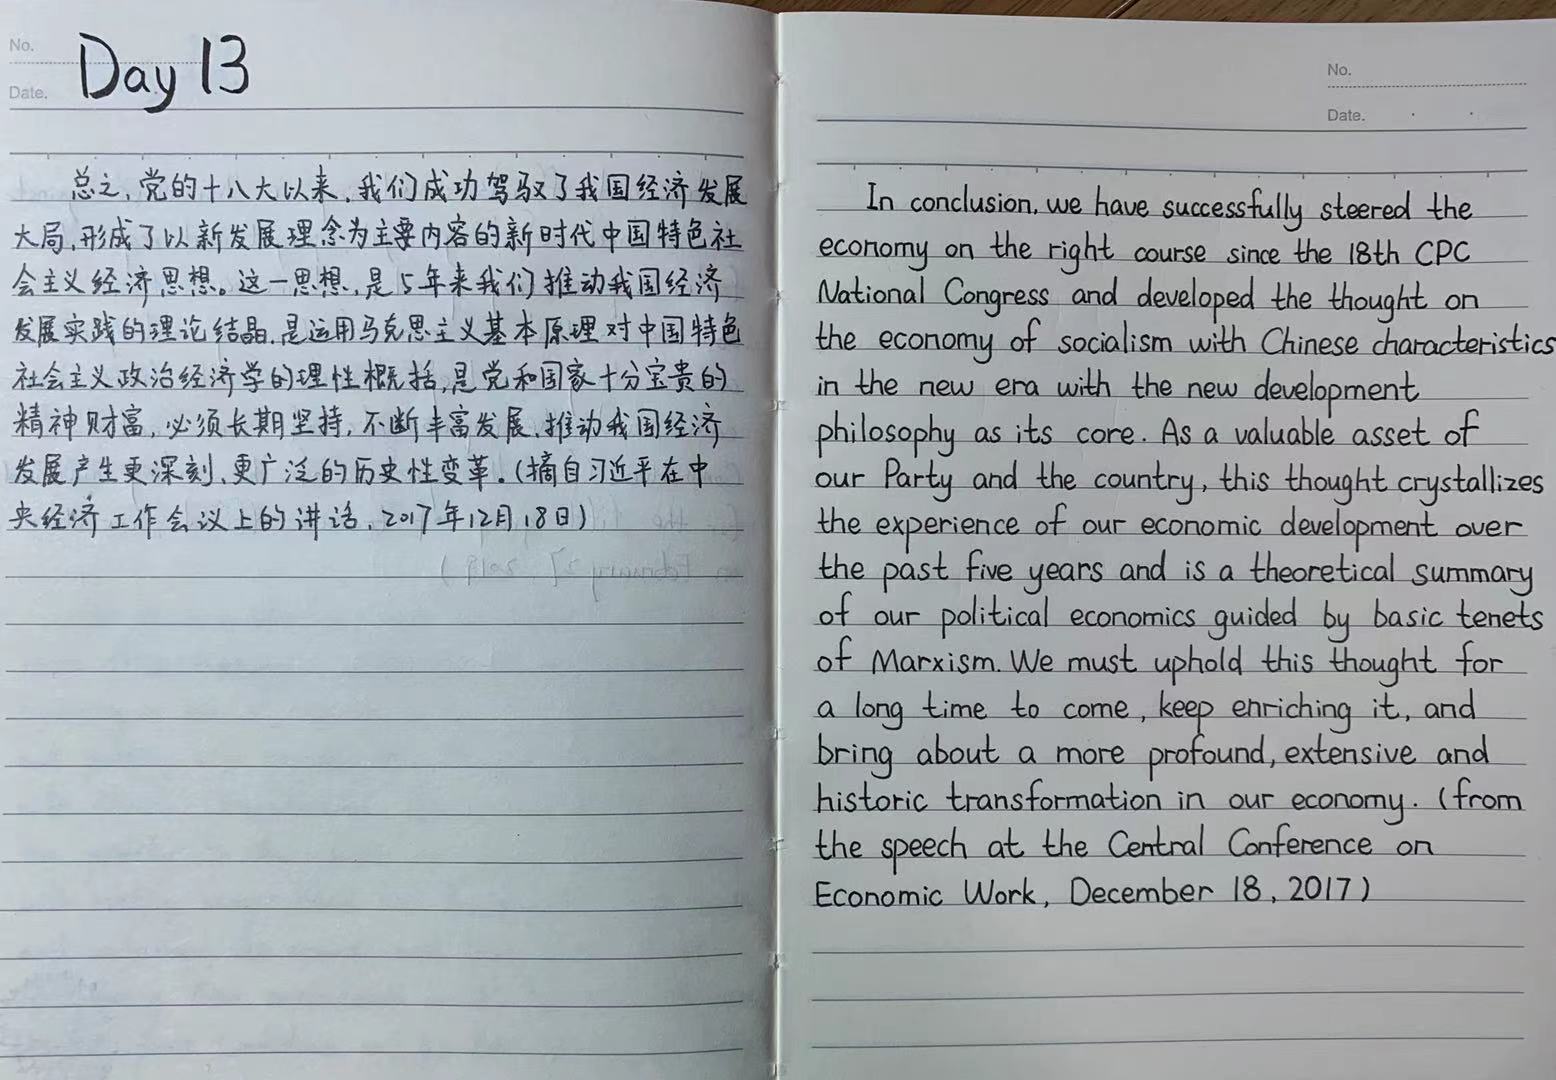 No.
Day 13
Date.
总之,党的十八大以来,我们成功驾驭了我国经济发展
大局,形成了以新发展理念为主要内容的新时代中国特色社
会主义经济思想。这一思想,是5年来我们推动我国经济
发展实践的理论结晶,是运用马克思主义基本原理对中国特色
社会主义政治经济学的理性概括,是党和国家十分宝贵的
精神财富,必须长期坚持,不断丰富发展,推动我国经济
发展产生更深刻、更广泛的历史性变革。(摘自习近平在中
央经济工作会议上的讲话,2017年12月18日)
No.
Date.
In conclusion, we have successfully steered the
economy on the right course since the 18th CPC
National Congress and developed the thought on
the economy of socialism with Chinese characteristics
in the new era with the new development
philosophy as its core. As a valuable asset of
our Party and the country, this thought crystallizes
the experience of our economic development over
the past five years and is a theoretical summary
of our political economics guided by basic tenets
of Marxism. We must uphold this thought for
a long time to come, keep enriching it, and
bring about a more profound, extensive and
historic transformation in our economy. (from
the speech at the Central Conference on
Economic Work, December 18, 2017)